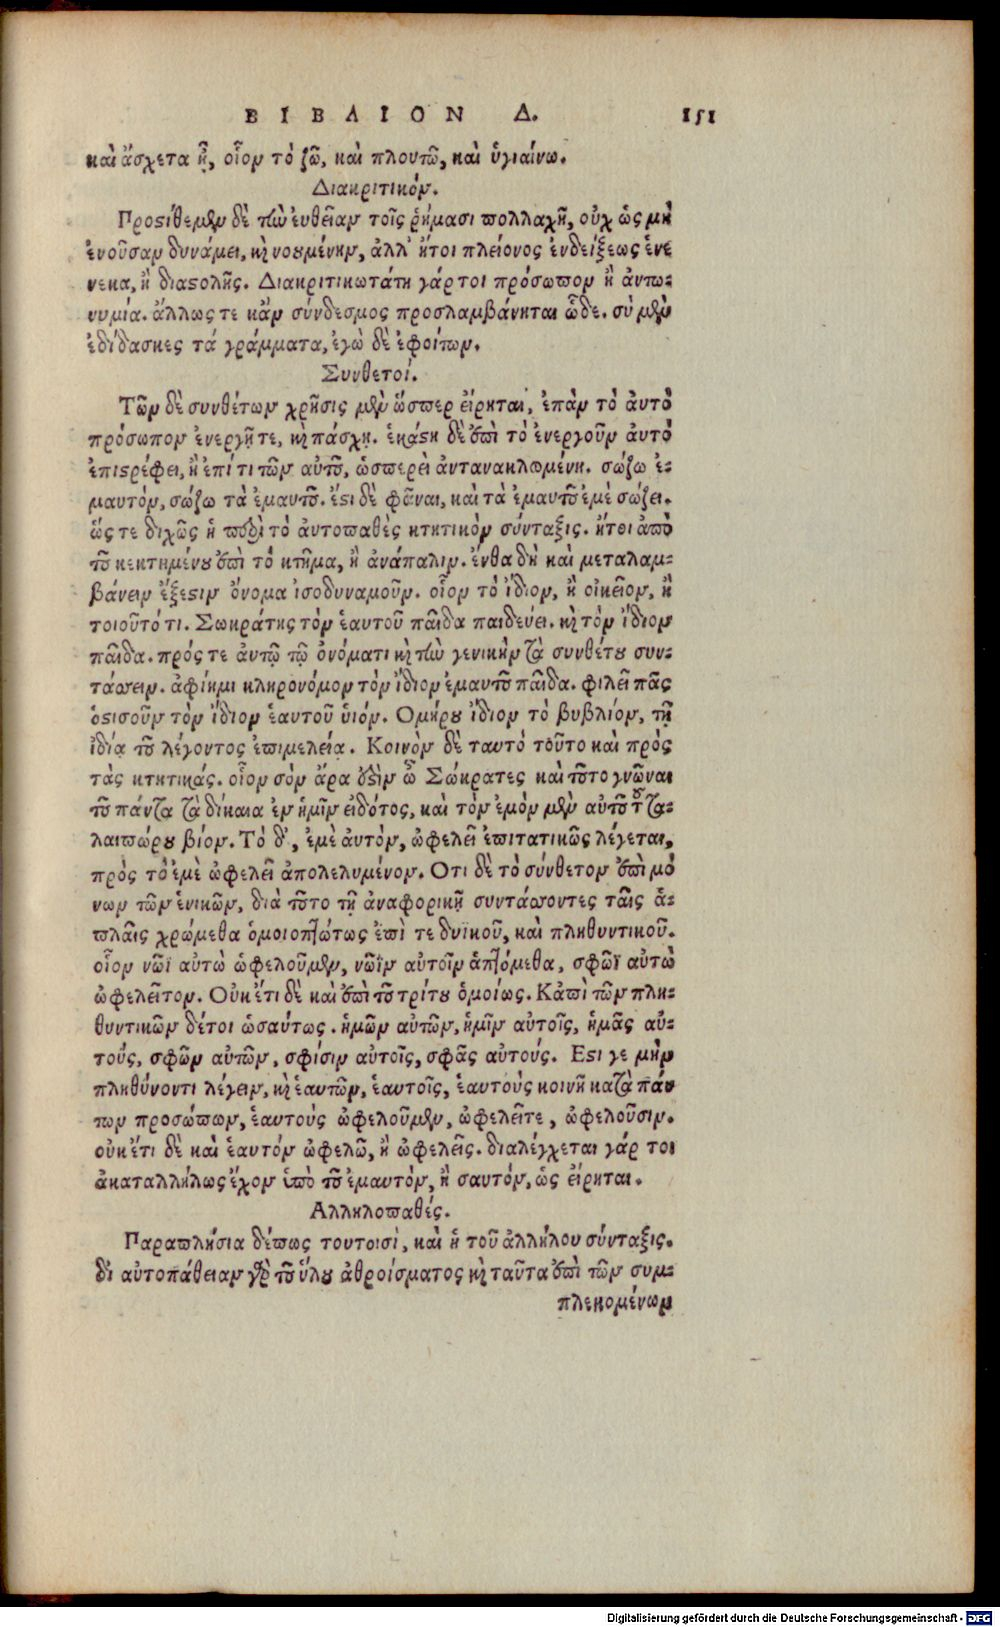 ΒΙΒΛΙΟΝ Δ. 151
καὶ ἄσχετα ᾖ, οἷον τὸ ζῶ, καὶ πλουτῶ, καὶ ὑγιαίνω.
Διακριτικόν.
Προστίθεμεν δὲ τὴν ἐυθεῖαν τοῖς ῥήμασι πολλαχῆ, οὐχ ὡς μὴ
ἐνοῦσαν δυνάμει, κὴ νουμένην, ἀλλ' ἤτοι πλείονος ἐνδείξεως ἕνε
νεκα, ἢ διαστολῆς. Διακριτικωτάτη γάρ τοι πρόσωπον ἢ ἀντω-
νυμία. ἄλλως τε κἂν σύνδεσμος προσλαμβάνηται ὧδε. σὺ μὲν
ἐδίδασκες τά γράμματα, ἐγὼ δὲ ἐφοίτων.
Συνθετοί.
Τῶν δὲ συνθέτων χρῆσις μὲν ὥσπερ εἴρηται, ἐπὰν τὸ ἀυτὸ
πρόσωπον ἐνεργῇ τε, κὴ πάσχῃ. ἑκάστη δὲ ἐπὶ τὸ ἐνεργοῦν ἀυτὸ
ἐπιστρέφει, ἢ ἐπί τι τῶν αὐτοῦ, ὡσπερεὶ ἀντανακλωμένη. σώζω ἐ-
μαυτόν, σώζω τὰ ἐμαυτοῦ. ἔστι δὲ φᾶναι, καὶ τὰ ἐμαυτοῦ ἐμὲ σώζει.
ὥς τε διχῶς ἡ περὶ τὸ ἀυτοπαθὲς κτητικὸν σύνταξις. ἤτοι ἀπὸ
τοῦ κεκτημένου ἐπὶ τὸ κτῆμα, ἢ ἀνάπαλιν. ἔνθα δὴ καὶ μεταλαμ-
βάνειν ἔξεστιν ὄνομα ἰσοδυναμοῦν. οἷον τὸ ἴδιον, ἢ οἰκεῖον, ἢ
τοιοῦτό τι. Σωκράτης τὸν ἑαυτοῦ παῖδα παιδεύει. κὴ τὸν ἴδιον
παῖδα. πρός τε ἀυτῷ τῷ ὀνόματι κὴ τὴν γενικὴν τὰ συνθέτου συν-
τάττειν. ἀφίημι κληρονόμον τὸν ἴδιον ἐμαυτοῦ παῖδα. φιλεῖ πᾶς
ὁστισοῦν τὸν ἴδιον ἑαυτοῦ ὑιόν. Ομήρου ἴδιον τὸ βυβλίον, τῇ
ἰδίᾳ τοῦ λέγοντος ἐπιμελείᾳ. Κοινὸν δὲ ταυτό τοῦτο καὶ πρὸς
τὰς κτητικάς. οἷον σὸν ἄρα ἐστὶν ὦ Σώκρατες καὶ τοῦτο γνῶναι
τοῦ πάντα τὰ δίκαια ἐν ἡμῖν εἰδότος, καὶ τὸν ἐμὸν μὲν αὐτοῦ τοῦ τα-
λαιπώρου βίον. Τό δ', ἐμὲ ἀυτόν, ὠφελεῖ ἐπιτατικῶς λέγεται,
πρὸς τὸ ἐμὲ ὠφελεῖ ἀπολελυμένον. Οτι δὲ τὸ σύνθετον ἐπὶ μό
νων τῶν ἑνικῶν, διὰ τοῦτο τῇ ἀναφορικῇ συντάττοντες ταῖς ἁ-
πλαῖς χρώμεθα ὁμοιοπτώτως ἐπὶ τε δυϊκοῦ, καὶ πληθυντικοῦ.
οἷον νῶϊ αὐτὼ ὠφελοῦμεν, νῶϊν αὐτοῖν ἁπτόμεθα, σφῶϊ αὐτὼ
ὠφελεῖτον. Οὐκέτι δὲ καὶ ἐπὶ τοῦ τρίτου ὁμοίως. Κἀπὶ τῶν πλη-
θυντικῶν δέτοι ὡσαύτως. ἡμῶν αὐτῶν, ἡμῖν αὐτοῖς, ἡμᾶς αὐ-
τούς, σφῶν αὐτῶν, σφίσιν αὐτοῖς, σφᾶς αὐτούς. Εστι γε μὴν
πληθύνοντι λέγειν, κὴ ἑαυτῶν, ἑαυτοῖς, ἑαυτοὺς κοινῇ κατὰ πάν
των προσώπων, ἑαυτοὺς ὠφελοῦμεν, ὠφελεῖτε, ὠφελοῦσιν.
οὐκέτι δὲ καὶ ἑαυτόν ὠφελῶ, ἢ ὠφελεῖς. διαλέγχεται γάρ τοι
ἀκαταλλήλως ἔχον ὑπὸ τοῦ ἐμαυτόν, ἢ σαυτόν, ὡς εἴρηται.
Αλληλοπαθές.
Παραπλήσια δέπως τουτοισὶ, καὶ ἡ τοῦ ἀλλήλου σύνταξις.
δι αὐτοπάθειαν γὰρ τοῦ ὅλου ἀθροίσματος κὴ ταῦτα ἐπὶ τῶν συμ-
πλεκομένων
Digitalisierung gefördert durch die Deutsche Forschungsgemeinschaft - DFG